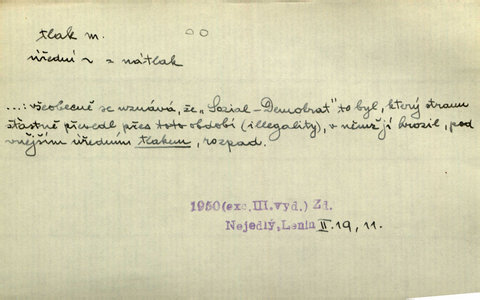 tlak m.
úřední ~ = nátlak
...: všeobecně se uznává, že „Sozial-Demokrat" to byl, který stranu
šťastně převedl přes toto období (illegality), v němž jí hrozil, pod
vnějším úředním tlakem, rozpad.
1950(exc.III.vyd.) Zd.
Nejedlý, Lenin II. 19, 11.